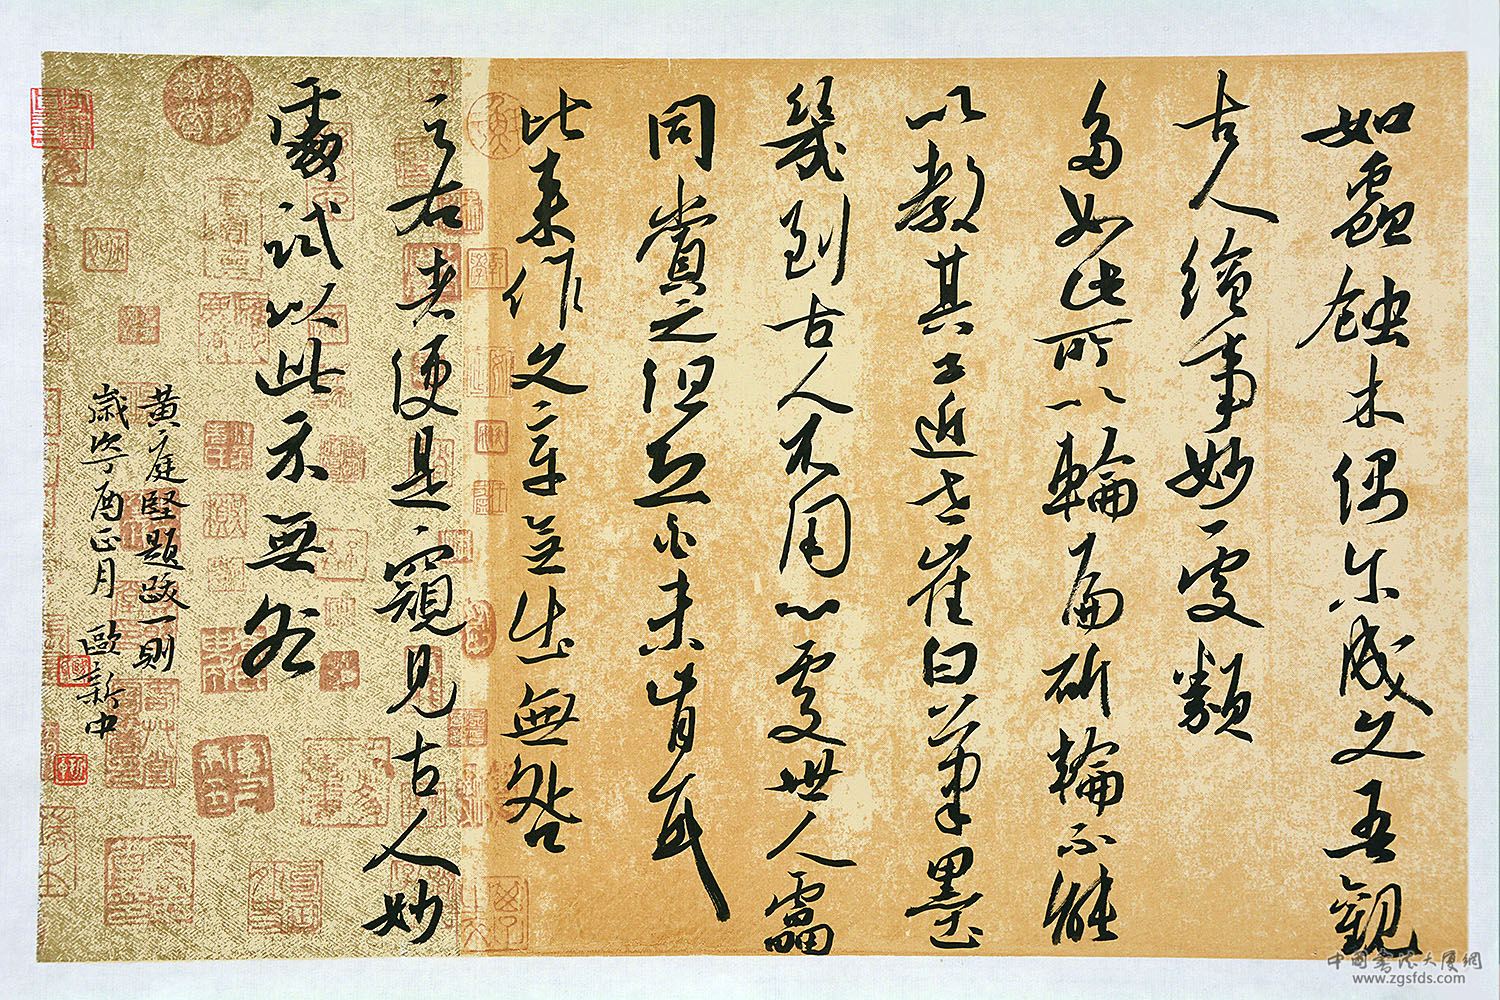 如蟲蝕木偶尔成文吾觀
古人繪事妙處類
多如此所以輪扁斫輪不能
以教其子近世崔白筆墨
幾到古人不用心處世人靁
同賞之但恐白未肯耳
比來作文章無出無咎
之右者便是窺見古人妙
處試以此示無咎
黄庭堅題跋一則
歲次丁酉正月歐新中
中國書法大厦網
www.zgsfds.com